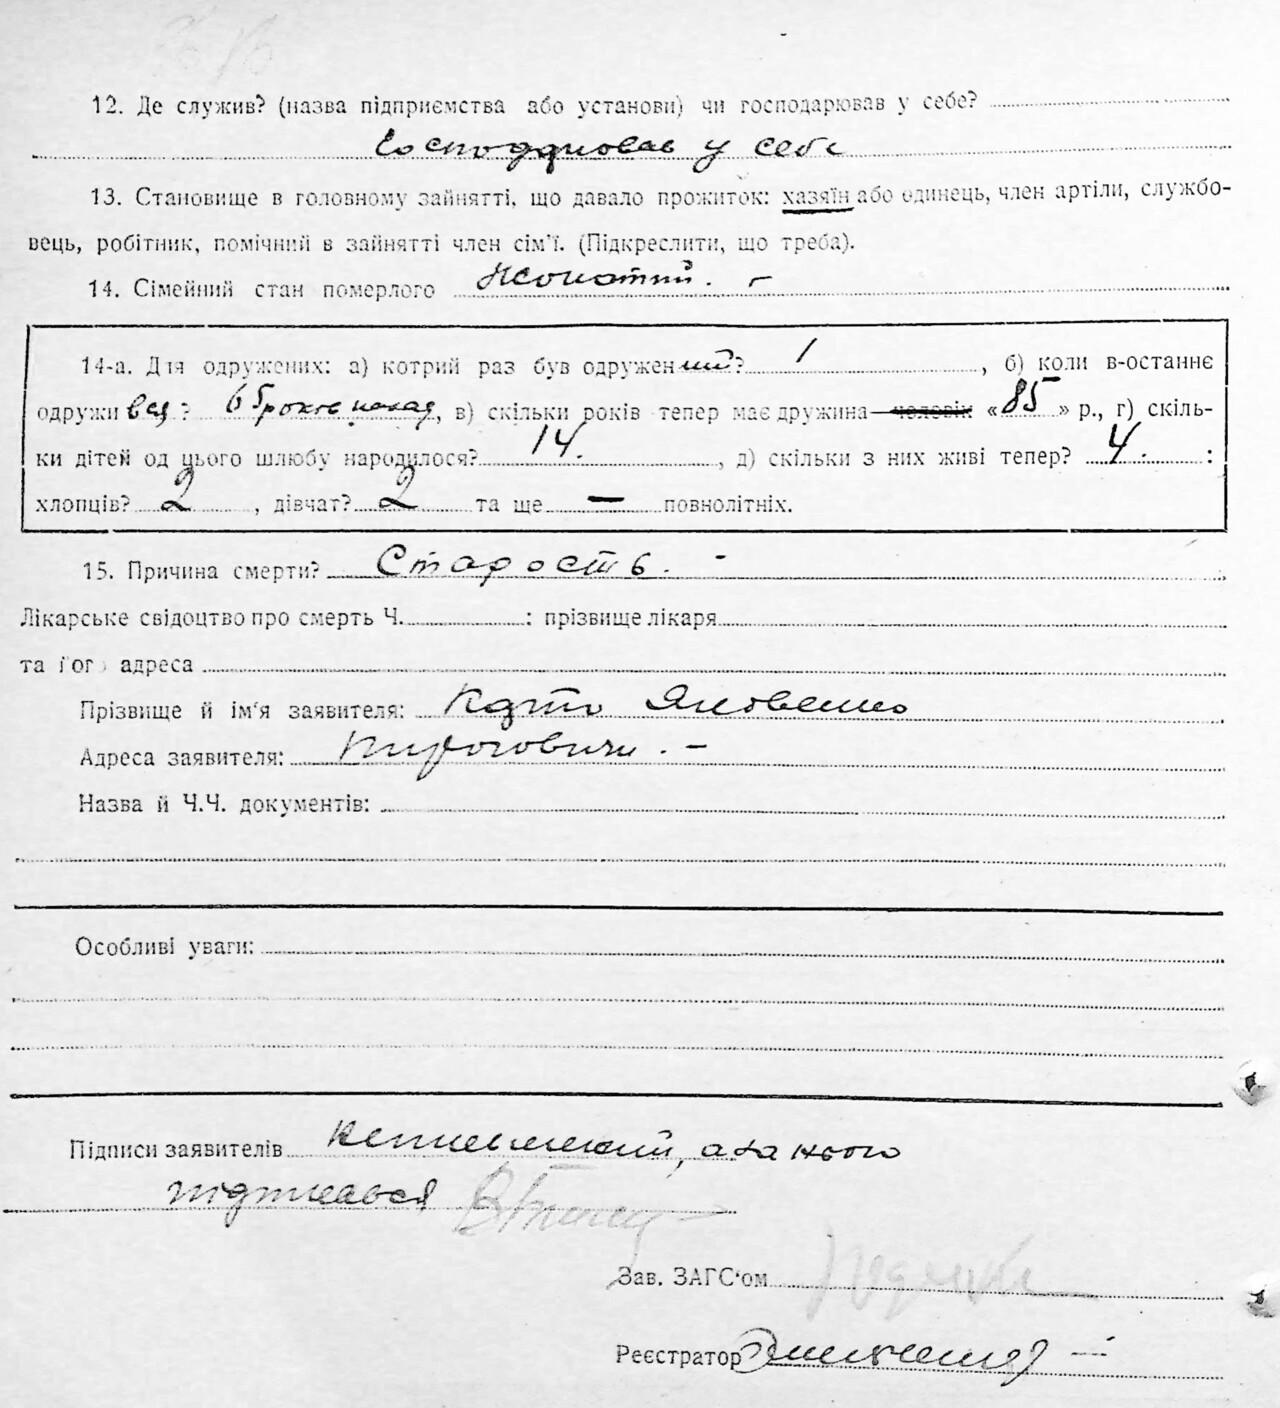 12. Де служив? (назва підприємства або установи) чи господарював у себе?
Господарював у себе
13. Становище в головному зайнятті, що давало прожиток: хазяїн або одинець, член артіли, службо-
вець, робітник, помічний в зайнятті член сім'ї. (Підкреслити, що треба).
14. Сімейний стан померлого Жонатий. –
14-а. Для одружених: а) котрий раз був одружений? 1, б) коли в-останнє
одруживвся? 65 років назад, в) скільки років тепер має дружина человік «85» р., г) скіль-
ки дітей од цього шлюбу народилося? 14., д) скільки з них живі тепер? 4. :
хлопців? 2, дівчат? 2 та ще — повнолітніх.
15. Причина смерти? Старость. -
Лікарське свідоцтво про смерть Ч. : прізвище лікаря
та його адреса
Прізвище й ім'я заявителя: Яковенко
Адреса заявителя:
Назва й Ч.Ч. документів:
Особливі уваги:
Підписи заявителів неписьменний, а за нього
підписався
Зав. ЗАГС'ом
Реєстратор